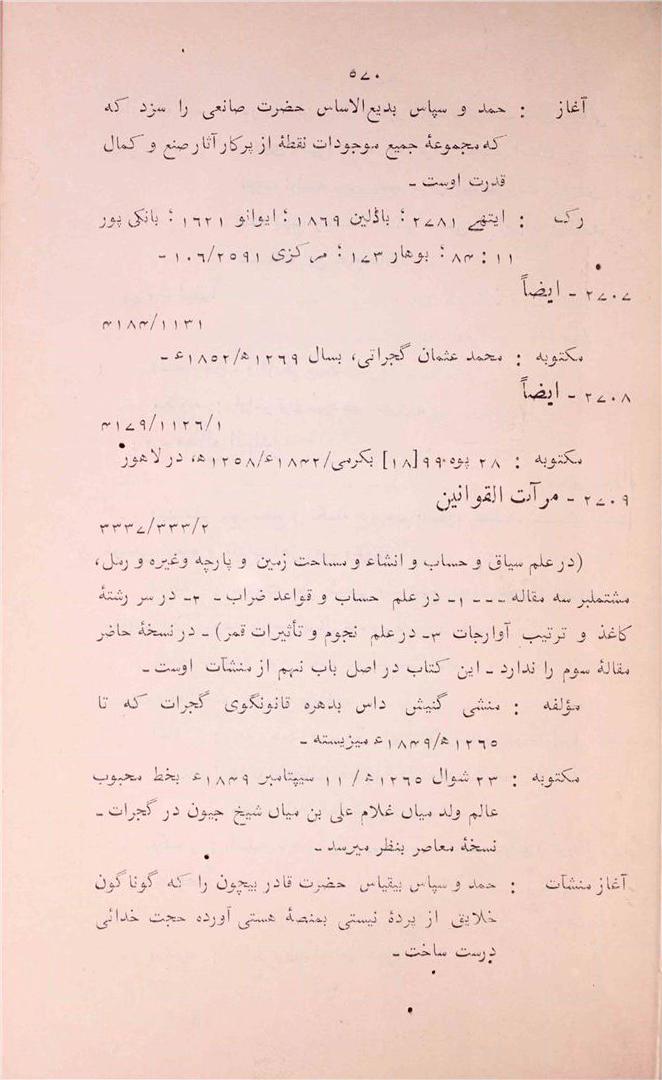 ۵۷۰
آغاز : حمد و سپاس بدیع‌الاساس حضرت صانعی را سزد که
که مجموعهٔ جمیع موجودات نقطهٔ از پرکار آثار صنع و کمال
قدرت اوست ـ
رک : ایتھے ۲۷۸۱؛ باڈلین ۱۸۶۹؛ ایوانو ۱۶۲۱؛ بانکی پور
۱۱ : ۸۴؛ بوهار ۱۷۳؛ مرکزی ۱۰۶/۲۵۹۱ ـ
۲۷۰۷ ـ ایضاً
۴۱۸۴/۱۱۳۱
مکتوبه : محمد عثمان گجراتی، بسال ۱۲۶۹ھ/۱۸۵۲ء ـ
۲۷۰۸ ـ ایضاً
۴۱۷۹/۱۱۲۶/۱
مکتوبه : ۲۸ پوہ ۹۹[۱۸] بکرمی/۱۸۴۲ء/۱۲۵۸ھ، در لاهور
۲۷۰۹ ـ مرآت القوانین
۳۳۳۷/۳۳۳/۲
(در علم سیاق و حساب و انشاء و مساحت زمین و پارچه وغیره و رمل،
مشتملبر سه مقاله ـ ـ ـ ۱ـ در علم حساب و قواعد ضراب ـ ۲ـ در سر رشتهٔ
کاغذ و ترتیب آوارجات ۳ـ در علم نجوم و تأثیرات قمر) ـ در نسخهٔ حاضر
مقالهٔ سوم را ندارد ـ این کتاب در اصل باب نهم از منشآت اوست ـ
مؤلفه : منشی گنیش داس بدهره قانونگوی گجرات که تا
۱۲۶۵ھ/۱۸۴۹ء میزیسته ـ
مکتوبه : ۲۳ شوال ۱۲۶۵ھ/۱۱ سیپتامبر ۱۸۴۹ء بخط محبوب
عالم ولد میاں غلام علی بن میاں شیخ جیون در گجرات ـ
نسخهٔ معاصر بنظر میرسد ـ
آغاز منشآت : حمد و سپاس بیقیاس حضرت قادر بیچون را که گوناگون
خلایق از پردهٔ نیستی بمنصهٔ هستی آورده حجت خدائی
درست ساخت ـ